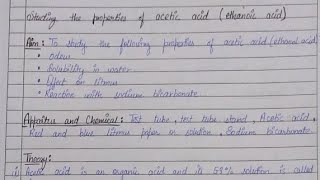 Studying the properties of acetic acid (ethanoic acid)
Aim: To study the following properties of acetic acid (ethanoic acid)
• Odour
• Solubility in water
• Effect on litmus
• Reaction with sodium bicarbonate.
Apparatus and Chemical: Test tube, test tube stand, Acetic acid,
Red and blue litmus paper in solution, Sodium bicarbonate.
Theory:
i) Acetic acid is an organic acid and its 5% solution is called